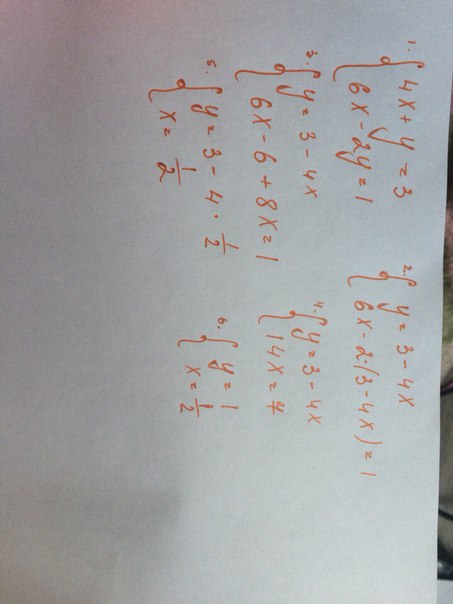 1. { 4x + y = 3
6x - 2y = 1
2. { y = 3 - 4x
6x - 2·(3 - 4x) = 1
3. { y = 3 - 4x
6x - 6 + 8x = 1
4. { y = 3 - 4x
14x = 7
5. { y = 3 - 4 · 1/2
x = 1/2
6. { y = 1
x = 1/2